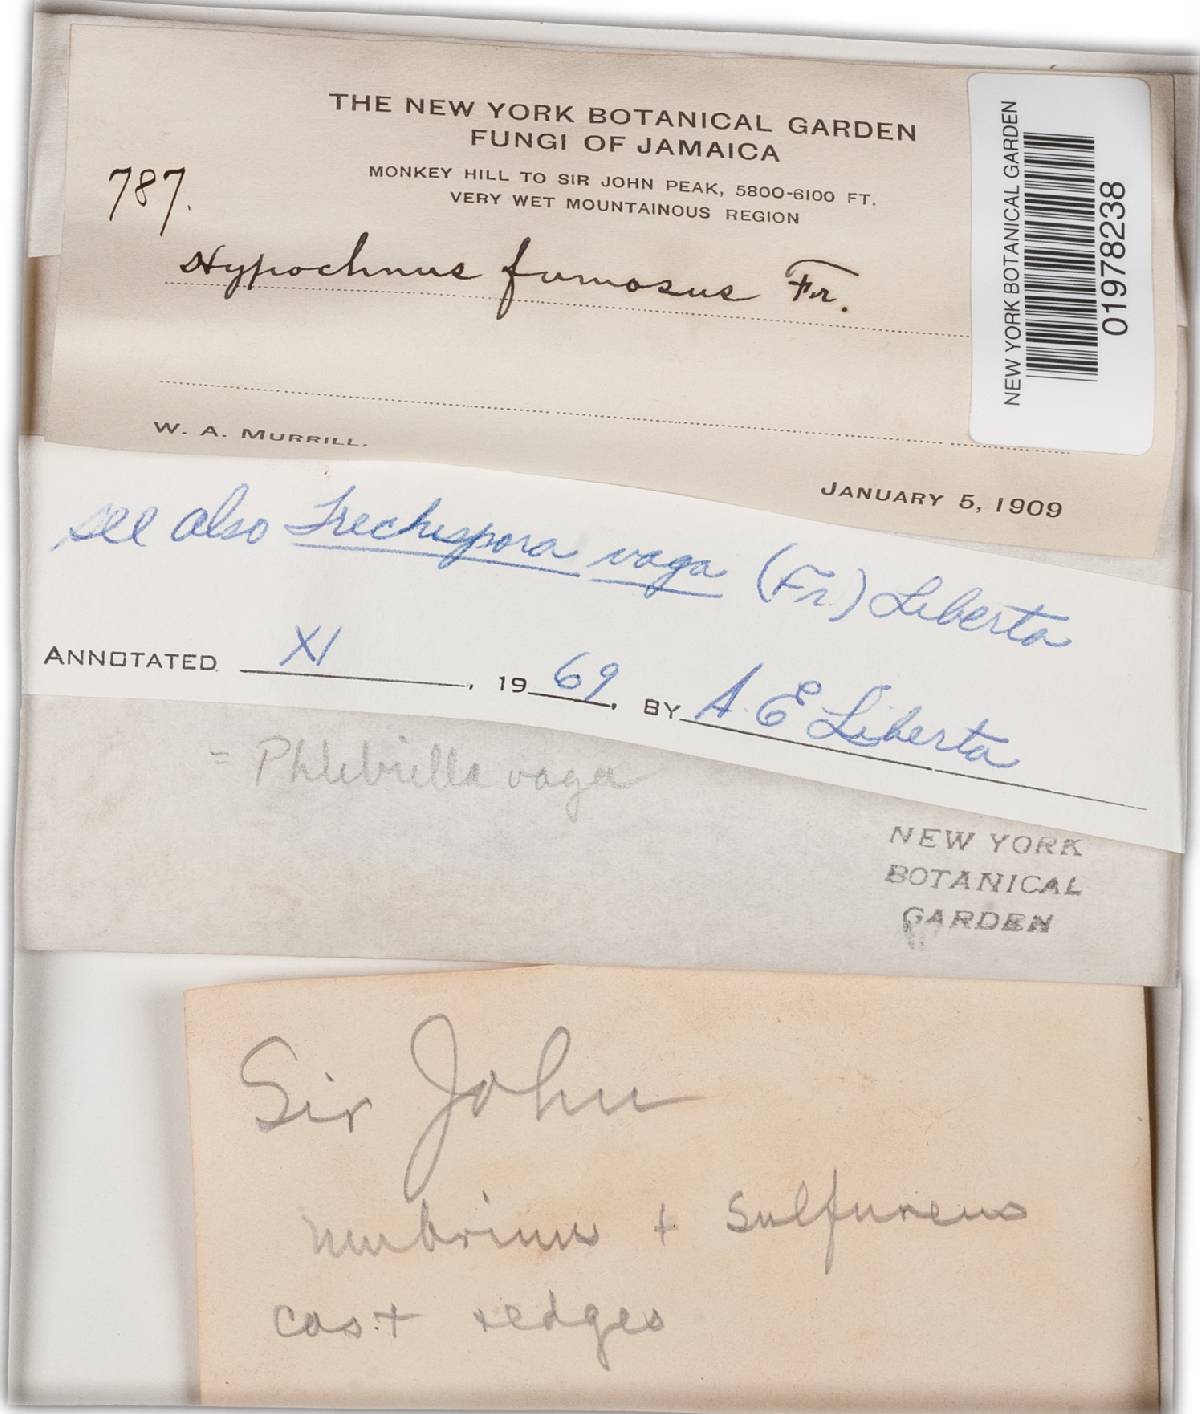 THE NEW YORK BOTANICAL GARDEN
FUNGI OF JAMAICA
MONKEY HILL TO SIR JOHN PEAK, 5800-6100 FT.
VERY WET MOUNTAINOUS REGION
787.
Hypochnus fumosus Fr.
W. A. MURRILL.
JANUARY 5, 1909
NEW YORK BOTANICAL GARDEN
01978238
see also Trechispora vaga (Fr.) Liberta
ANNOTATED XI, 1969, BY A. E. Liberta
= Phlebiella vaga
NEW YORK
BOTANICAL
GARDEN
Sir John
umbrinus + sulfureus
cast edges